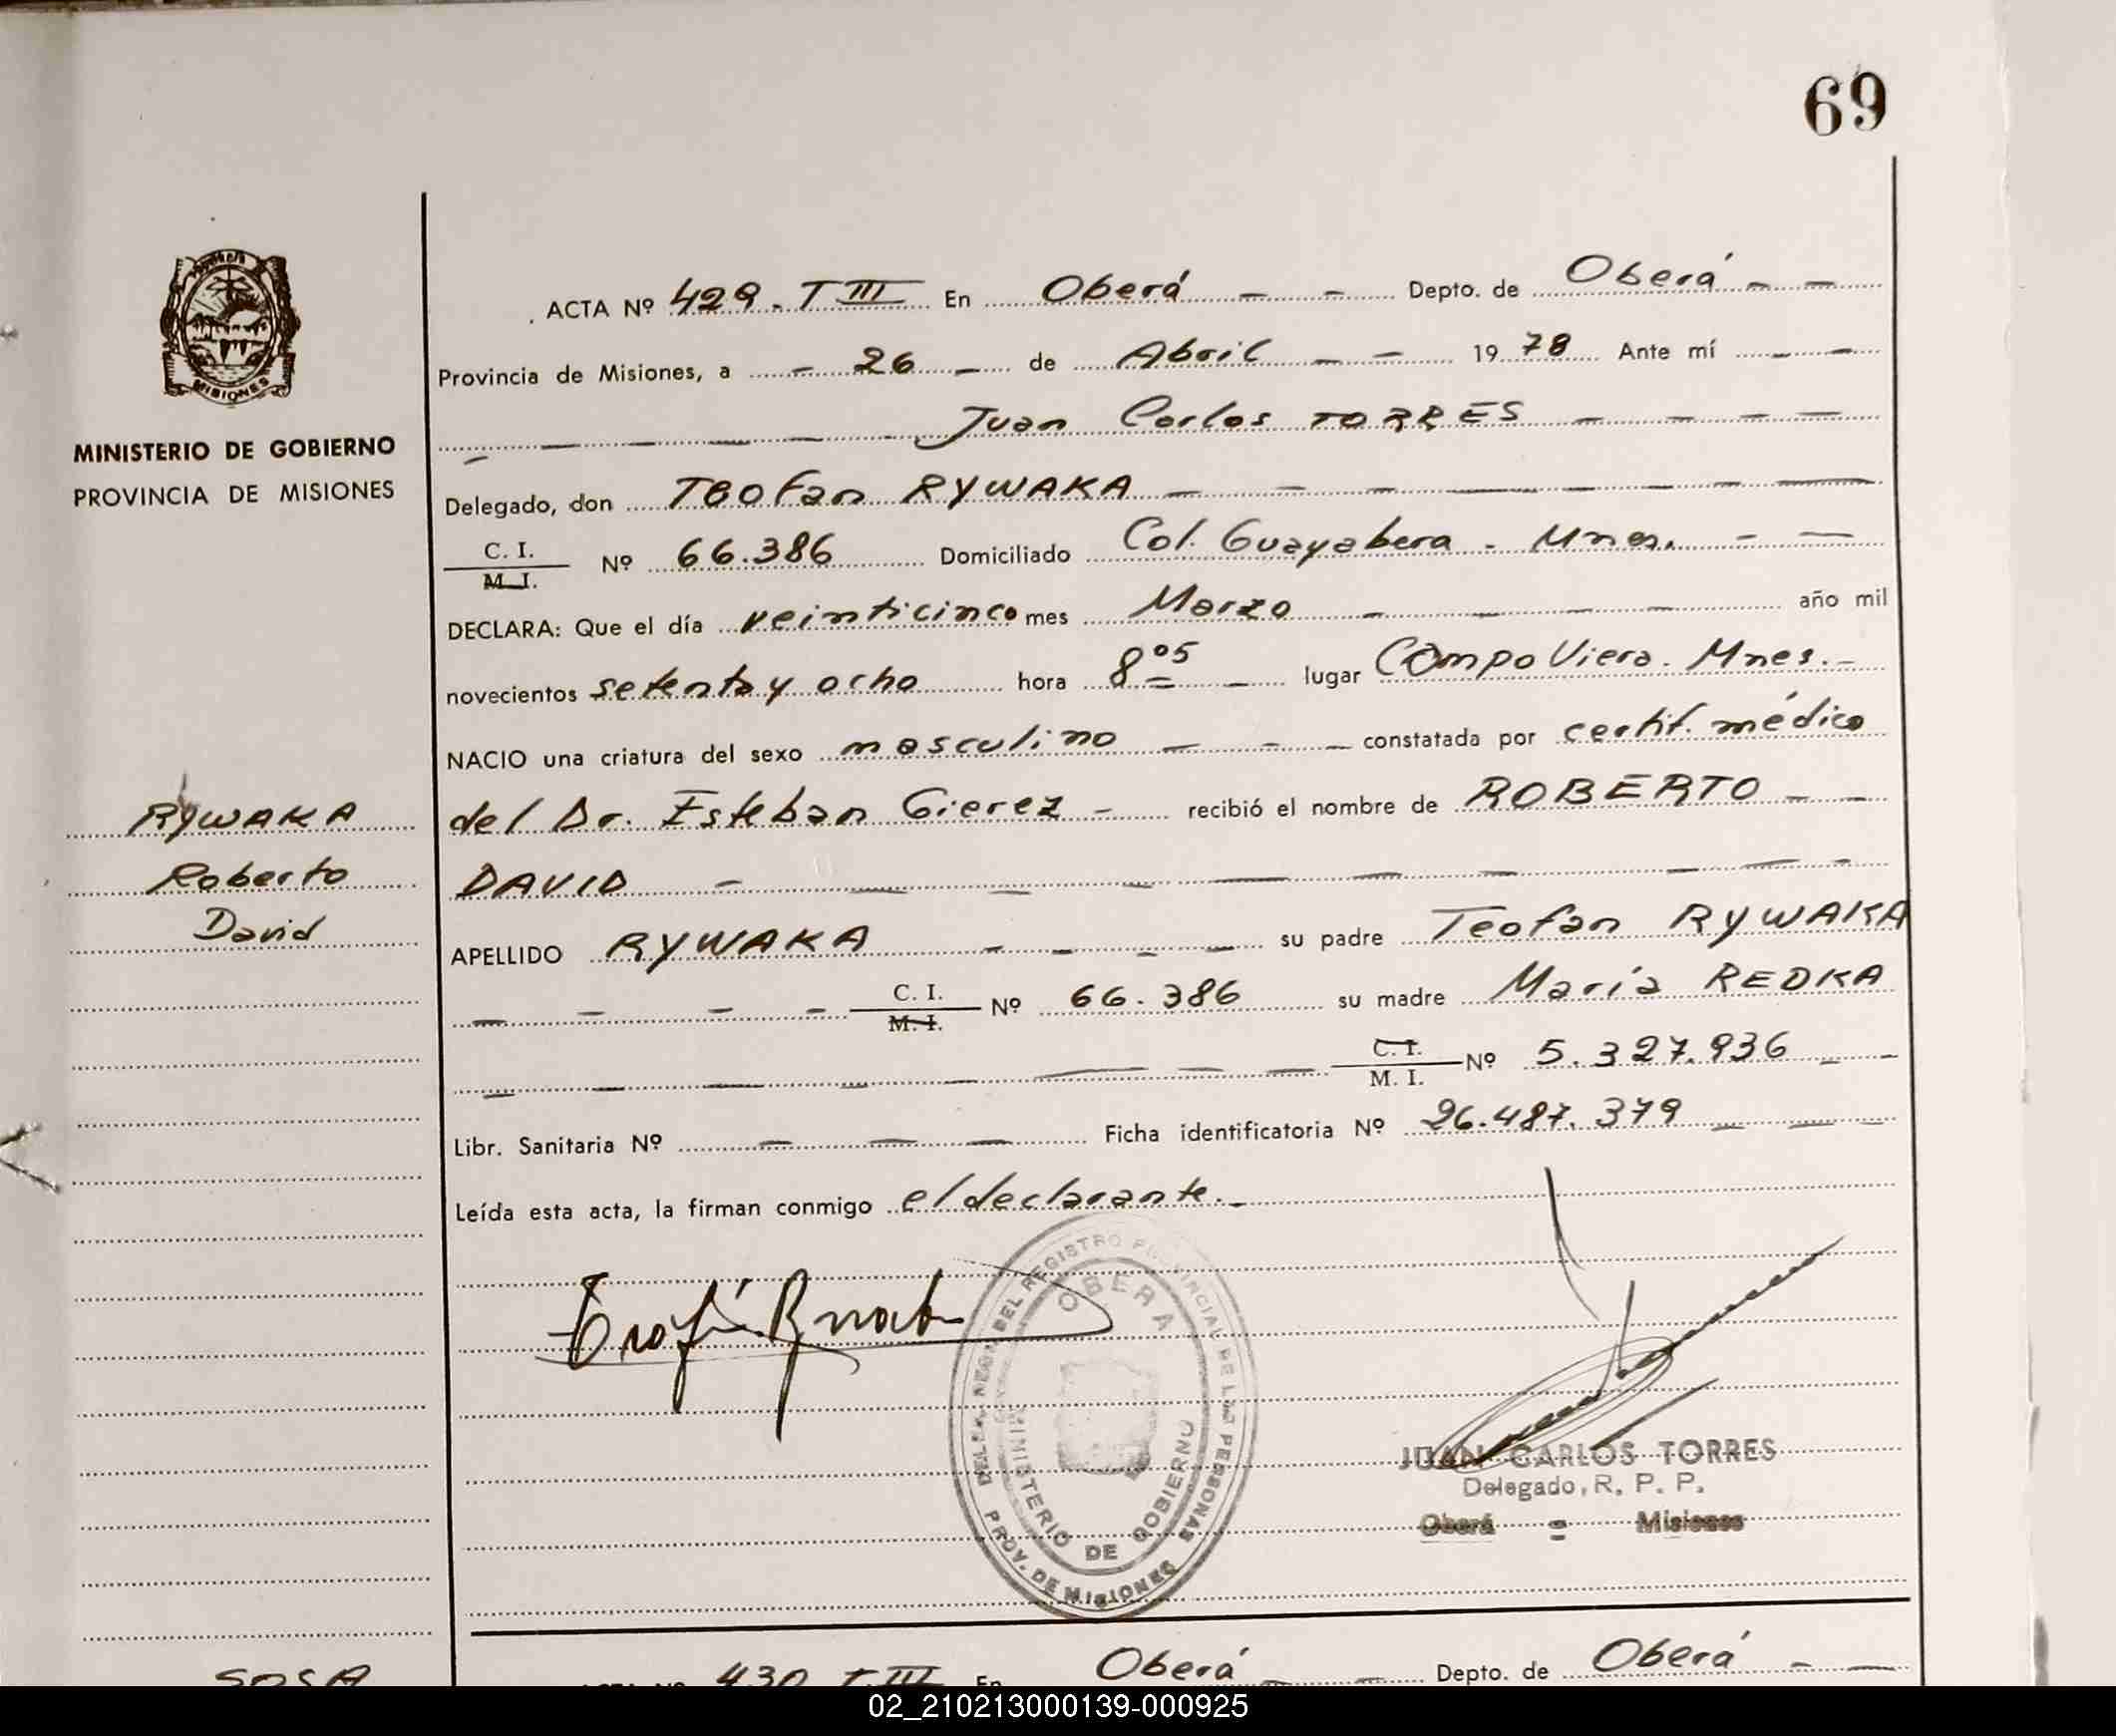 69
ACTA Nº 429. T III En Oberá Depto. de Oberá
Provincia de Misiones, a 26 de Abril 1978 Ante mí
Juan Carlos TORRES
MINISTERIO DE GOBIERNO
PROVINCIA DE MISIONES
Delegado, don Teofan RYWAKA
C. I.
M. I. Nº 66.386 Domiciliado Col. Guayabera - Mnes.
DECLARA: Que el día veinticinco mes Marzo año mil
novecientos setenta y ocho hora 8 05 lugar Campo Viera. Mnes.
NACIO una criatura del sexo masculino constatada por certif. médico
RYWAKA
Roberto
David
del Dr. Esteban Gierez recibió el nombre de ROBERTO
DAVID
APELLIDO RYWAKA su padre Teofan RYWAKA
C. I.
M. I. Nº 66.386 su madre María REDKA
C. I.
M. I. Nº 5.327.936
Libr. Sanitaria Nº Ficha identificatoria Nº 26.487.379
Leída esta acta, la firman conmigo el declarante.
DEL REGISTRO PROVINCIAL DE LAS PERSONAS
OBERA
MINISTERIO DE GOBIERNO
PROV. DE MISIONES
JUAN CARLOS TORRES
Delegado, R. P. P.
Oberá - Misiones
SOSA
ACTA Nº 430 T III En Oberá Depto. de Oberá
02_210213000139-000925